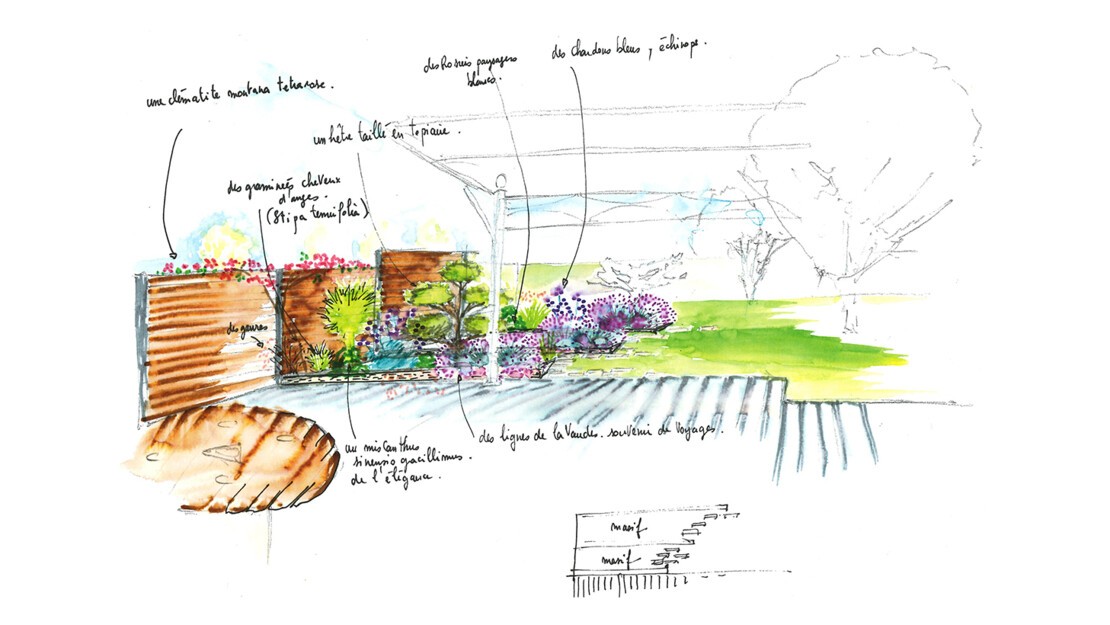 des Rosiers paysagers
blancs.
des chardons bleus, échinops.
une clématite montana tetrarose.
un hêtre taillé en topiaire.
des graminées cheveux
d'anges.
(Stipa tenuifolia)
des gauras
des lignes de lavandes. souvenir de voyages.
un miscanthus
sinensis gracillimus.
de l'élégance.
massif
massif